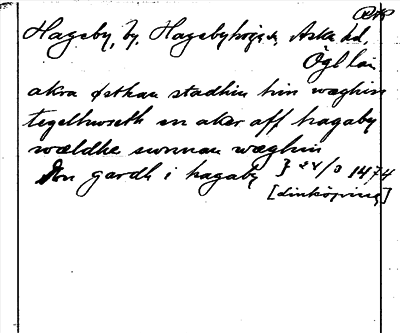 Hageby, by, Hagebyhöga sn, Aska hd,
Ögl län
akra østhan stadhin hin wæghin
tegelhwseth en aker aff hagaby
wældhe sunnan wæghin
Jon gardh i hagaby } 24/3 1474
[Linköping]